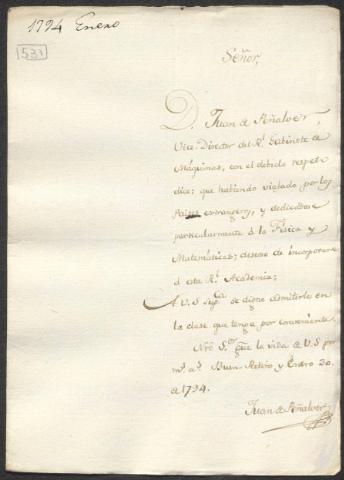 1794 Enero
531
Señor,
D. Juan de Peñalver,
Vice-Director del Rl. Gabinete de
Máquinas, con el debido respeto
dice: que habiendo viajado por los
Paises extrangeros, y dedicadose
particularmente á la Física y
Matemáticas; deseoso de incorporarse
á esta Rl. Academia;
A V.S. Supca. se digne admitirle en
la clase que tenga por conveniente.
Nrô Sor. gue. la vida de V.S por
ms. as. Buen-Retiro y Enero 20
de 1794.
Juan de Peñalver